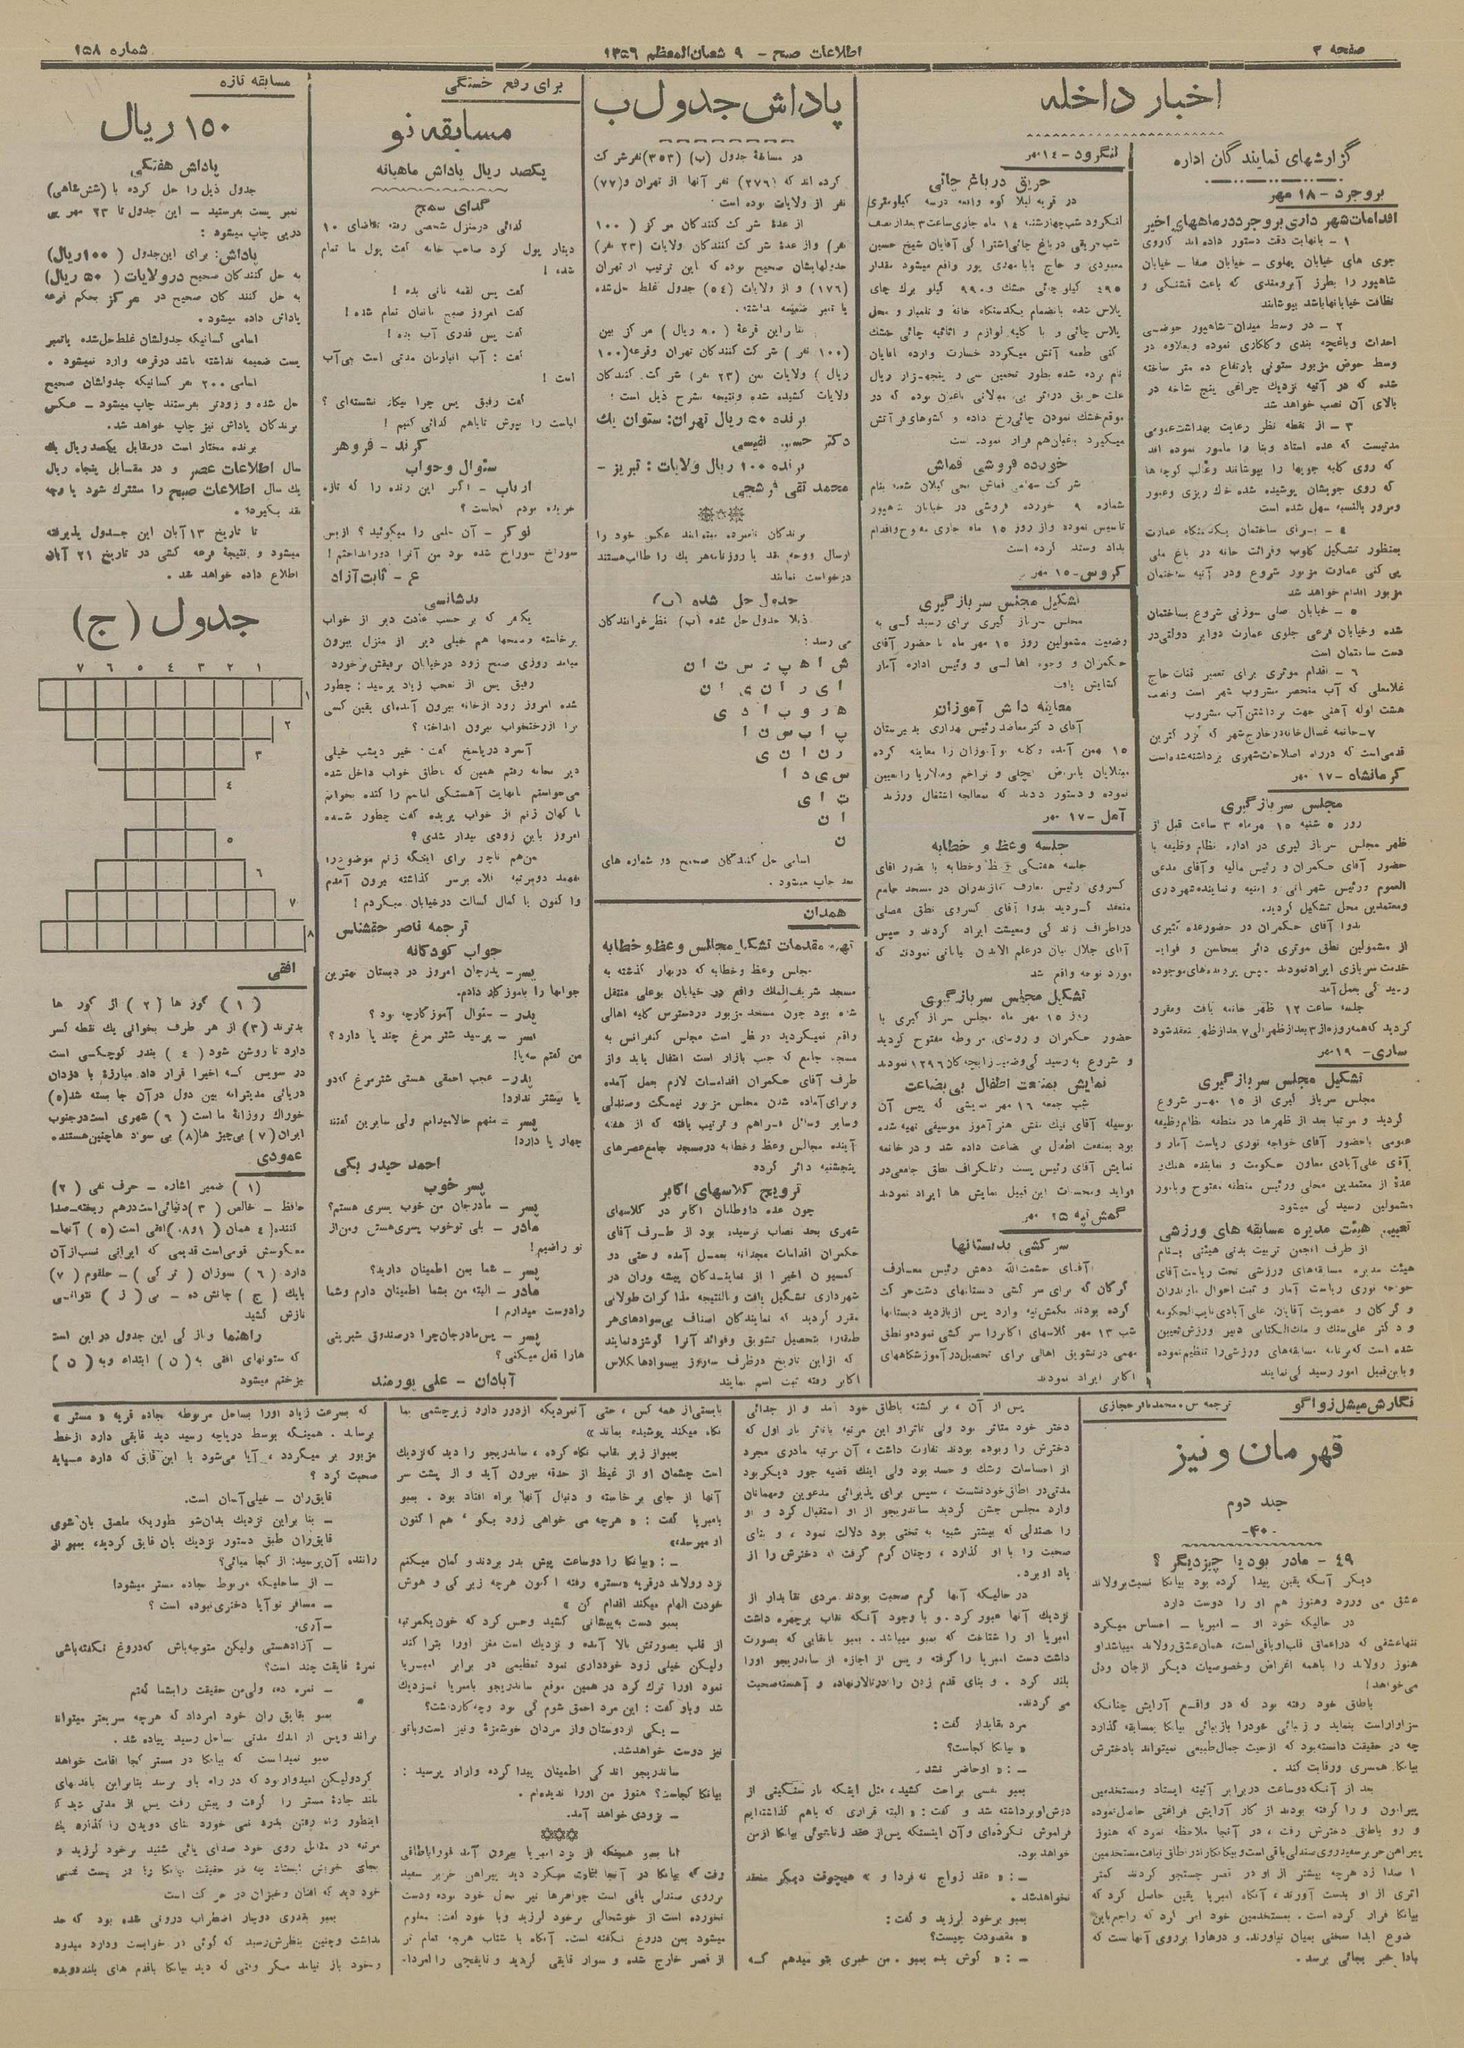 صفحه ۲
اطلاعات صبح - ۹ شعبان‌المعظم ۱۳۵۶
شماره ۱۵۸
اخبار داخله
گزارشهای نمایندگان اداره
بروجرد - ۱۸ مهر
اقدامات شهرداری بروجرد در ماههای اخیر
۱ - بانهایت دقت دستور داده‌اند کاروی
جوی های خیابان پهلوی - خیابان صفا - خیابان
شاهپور را بطرز آبرومندی که باعث قشنگی و
نظافت خیابانها باشد بپوشانند
۲ - در وسط میدان شاهپور حوضی
احداث وباغچه بندی وگلکاری نموده وبعلاوه در
وسط حوض مزبور ستونی بارتفاع ده متر ساخته
شده که در آتیه نزدیک چراغی پنج شاخه در
بالای آن نصب خواهد شد
۳ - از نقطه نظر رعایت بهداشت عمومی
مدتیست که عده استاد وبنا را مامور نموده اند
که روی کلیه جویها را بپوشانند
که روی جویشان پوشیده شده خاک ریزی وعبور
ومرور بالنسبه سهل شده است
۴ - برای ساختمان یکدستگاه عمارت
بمنظور تشکیل کلوب وقرائت خانه در باغ ملی
پی کنی عمارت مزبور شروع ودر آتیه ساختمان
مزبور اقدام خواهد شد
۵ - خیابان صلی سوزنی شروع بساختمان
شده وخیابان فرعی جلوی عمارت دوایر دولتی در
دست ساختمان است
۶ - اقدام موثری برای تعمیر قنات حاج
غلامعلی که آب منحصر مشروب شهر است
هشت لوله آهنی جهت برداشتن آب مشروب
۷ - خاتمه غسال‌خانه در خارج شهر که بزرگترین
قدمی است که در راه اصلاحات شهری برداشته شده است
کرمانشاه - ۱۷ مهر
مجلس سربازگیری
روز ۵ شنبه ۱۵ مهرماه ۳ ساعت قبل از
ظهر مجلس سربازگیری در اداره نظام وظیفه با
حضور آقای حکمران و رئیس مالیه وآقای مدعی
العموم ورئیس شهربانی و امنیه ونماینده شهرداری
ومعتمدین محل تشکیل گردید.
بدوا آقای حکمران در حضور عده کثیری
از مشمولین نطق موثری دائر بمحاسن و فواید
خدمت سربازی ایراد نمودند. پس پرونده‌های موجوده
رسیدگی بعمل آمد
جلسه ساعت ۱۲ ظهر خاتمه یافت ومقرر
گردید که همه روزه از ۳ بعد از ظهر الی ۷ بعد از ظهر منعقد شود
ساری - ۱۹ مهر
تشکیل مجلس سربازگیری
مجلس سرباز گیری از ۱۵ مهر شروع
گردید و مرتبا بعد از ظهرها در منطقه نظام وظیفه
عمومی باحضور آقای خواجه نوری ریاست آمار و
آقای علی‌آبادی معاون حکومت و نماینده هنگ و
عدهٔ از معتمدین محلی ورئیس منطقه مفتوح وبامور
مشمولین رسیدگی میشود
تعیین هیئت مدیره مسابقه های ورزشی
از طرف انجمن تربیت بدنی هیئتی بنام
هیئت مدیره مسابقه‌های ورزشی تحت ریاست آقای
خواجه نوری ریاست آمار و ثبت احوال مازندران
و گرگان و عضویت آقایان علی‌آبادی نایب‌الحکومه
شده است که برنامه مسابقه‌های ورزشی را تنظیم نموده
وباین قبیل امور رسیدگی نمایند
لنگرود - ۱۴ مهر
حریق در باغ چائی
در قریه لیلا کوه واقعه در سه کیلومتری
لنگرود شب چهارشنبه ۱۴ ماه جاری ساعت ۳ بعد از نصف
شب حریقی در باغ چائی اشتراکی آقایان شیخ حسین
معبودی و حاج بابا مهدی پور واقع میشود مقدار
۴۹۵ کیلو چائی خشک و ۹۹۰ کیلو برگ چای
پلاس شده بانضمام یکدستگاه خانه و تلمبار و محل
پلاس چائی و با کلیه لوازم و اثاثیه چائی خشک
کنی طعمه آتش میگردد خسارت وارده آقایان
نام برده شده بطور تخمین سی و پنجهزار ریال
علت حریق دراثر بی مبالاتی باغبان بوده که در
موقع خشک نمودن چائی رخ داده
میگیرد باغبان هم فرار نموده است
خورده فروشی قماش
شرکت سهامی قماش محلی گیلان شعبه بنام
شماره ۹ خورده فروشی در خیابان شاهپور
تاسیس نموده واز روز ۱۵ ماه جاری مفتوح واقدام
بداد وستد کرده است
گروس - ۱۵ مهر
تشکیل مجلس سربازگیری
مجلس سرباز گیری برای رسیدگی به
وضعیت مشمولین روز ۱۵ مهر ماه با حضور آقای
حکمران و وجوه اهالی و رئیس اداره آمار
گشایش یافت
معاینه دانش آموزان
آقای دکتر معاضد رئیس بهداری بدبیرستان
۱۵ بهمن آمده وکلیه نوآموزان را معاینه کرده
مبتلایان بامراض کچلی و تراخم ومالاریا را تعیین
نموده و دستور دادند که بمعالجه اشتغال ورزند
آمل - ۱۷ مهر
جلسه وعظ و خطابه
جلسه هفتگی وعظ وخطابه با حضور آقای
کسروی رئیس معارف مازندران در مسجد جامع
منعقد گردید بدوا آقای کسروی نطق مفصلی
دراطراف زندگی ومعیشت ایراد کردند و سپس
آقای جلالیان درعلم الابدان بیاناتی نمودند که
مورد توجه واقع شد
تشکیل مجلس سربازگیری
روز ۱۵ مهر ماه مجلس سرباز گیری با
حضور حکمران و روسای مربوطه مفتوح گردید
و شروع به رسیدگی وضعیت زایچه‌گان ۱۲۹۶ نمودند
نمایش بمنفعت اطفال بی بضاعت
شب جمعه ۱۶ مهر نمایشی که پیس آن
بوسیله آقای نیک منش هنرآموز موسیقی تهیه شده
بود بمنفعت اطفال بی بضاعت داده شد و در خاتمه
نمایش آقای رئیس پست وتلگراف نطق جامعی در
فواید ومحسنات این قبیل نمایش ها ایراد نمودند
گمش تپه ۲۵ مهر
سرکشی بدبستانها
آقای حشمت‌الله دهش رئیس معارف
گرگان که برای سرکشی دبستانهای دشت حرکت
کرده بودند بگمش‌تپه وارد پس ازبازدید دبستانها
شب ۱۳ مهر کلاسهای اکابر را سرکشی نموده ونطق
مهمی در تشویق اهالی برای تحصیل در آموزشگاههای
اکابر ایراد نمودند
پاداش جدول ب
در مسابقهٔ جدول (ب) (۳۵۳) نفر شرکت
کرده اند که (۲۷۶) نفر آنها از تهران و (۷۷)
نفر از ولایات بوده است
از عدهٔ شرکت کنندگان مرکز (۱۰۰
نفر) واز عدهٔ شرکت کنندگان ولایات (۲۳ نفر)
جدولهایشان صحیح بوده که این ترتیب از تهران
(۱۷۶) و از ولایات (۵۴) جدول غلط حل شده
یا تمبر ضمیمه نداشته.
بنابراین قرعهٔ (۵۰ ریال) مرکز بین
(۱۰۰ نفر) شرکت کنندگان تهران وقرعه (۱۰۰
ریال) ولایات بین (۲۳ نفر) شرکت کنندگان
ولایات کشیده شده ونتیجه بشرح ذیل است:
برنده ۵۰ ریال تهران: ستوان یک
دکتر حسین نفیسی
برنده ۱۰۰ ریال ولایات: تبریز -
محمد تقی فرشچی
برندگان نامبرده میتوانند عکس خود را
ارسال ووجه نقد یا روزنامه هر یک را طالب هستند
درخواست نمایند
جدول حل شده (ب)
ذیلا جدول حل شده (ب) بنظر خوانندگان
می رسد:
ش ا ه پ ر س ت ا ن
ا ی ر ا ن ی ا ن
ه ر و ب ا د ی
پ ا ب س ن ا
ر ن ا ن ی
س ی د ا
ت ا ی
ا ن
ن
اسامی حل کنندگان صحیح در شماره های
بعد چاپ میشود.
همدان
تهیه مقدمات تشکیل مجالس وعظ و خطابه
مجلس وعظ وخطابه که در بهار گذشته به
مسجد شریف‌الملک واقع در خیابان بوعلی منتقل
شده بود چون مسجد مزبور در دسترس کلیه اهالی
واقع نمیگردید در نظر است مجلس کنفرانس به
مسجد جامع که جنب بازار است انتقال یابد واز
طرف آقای حکمران اقدامات لازم بعمل آمده
وبرای آماده شدن مجلس مزبور نیمکت وصندلی
وسایر وسائل فراهم و ترتیب یافته که از هفته
آینده مجالس وعظ و خطابه در مسجد جامع عصرهای
پنجشنبه دائر گردد
ترویج کلاسهای اکابر
چون عده داوطلبان اکابر در کلاسهای
شهری بحد نصاب نرسیده بود از طرف آقای
حکمران اقدامات مجدانه بعمل آمده وحتی دو
کمسیون اخیرا از نمایندگان پیشه وران در
شهرداری تشکیل یافت وبالنتیجه مذاکرات طولانی
مقرر گردید که نمایندگان اصناف بی‌سوادهای هر
طبقه را بتحصیل تشویق وفوائد آنرا گوشزد نمایند
که ازاین تاریخ درظرف سه روز بیسوادها بکلاس
اکابر رفته ثبت اسم نمایند
برای رفع خستگی
مسابقه نو
یکصد ریال پاداش ماهیانه
گدای سمج
گدائی درمنزل شخصی رفته تقاضای ۱۰
دینار پول کرد صاحب خانه گفت پول ما تمام
شده!
گفت پس لقمه نانی بده!
گفت امروز صبح نانمان تمام شده!
گفت پس قدری آب بده!
گفت: آب انبارمان مدتی است بی‌آب
است!
گفت رفیق پس چرا بیکار نشسته‌ای؟
لباست را بپوش تا باهم گدائی کنیم!
کرند - فروهر
سئوال وجواب
ارباب - اکبر این زنده را که تازه
خریده بودم کجاست؟
نوکر - آن حلبی را میگوئید؟ از بس
سوراخ سوراخ شده بود من آنرا دور انداختم!
ع - ثابت آزاد
بدشانسی
یکنفر که بر حسب عادت دیر از خواب
برخاسته وصبحها هم خیلی دیر از منزل بیرون
میآمد روزی صبح زود درخیابان برفیقش برخورد
رفیق پس از تعجب زیاد پرسید: چطور
شده امروز زود ازخانه بیرون آمده‌ای یقین کسی
ترا ازرختخواب بیرون انداخته؟
آنمرد درپاسخ گفت: خیر دیشب خیلی
دیر بخانه رفتم همین که باطاق خواب داخل شده
می‌خواستم بانهایت آهستگی لباسم را کنده بخوابم
ناگهان زنم از خواب پریده گفت چطور شده
امروز باین زودی بیدار شدی؟
من هم ناچار برای اینکه زنم موضوع را
نفهمد دومرتبه کلاه برسر گذاشته بیرون آمدم
واکنون با کمال کسالت درخیابان میگردم!
ترجمه ناصر حقشناس
جواب کودکانه
پسر - پدرجان امروز در دبستان بهترین
جوابها را بآموزگار دادم.
پدر - سئوال آموزگار چه بود؟
پسر - پرسید شتر مرغ چند پا دارد؟
من گفتم سه پا!
پدر - عجب احمقی هستی شترمرغ که دو
پا بیشتر ندارد!
پسر - منهم حالا میدانم ولی سایرین گفتند
چهار پا دارد!
احمد حیدر بکی
پسر خوب
پسر - مادرجان من خوب پسری هستم؟
مادر - بلی توخوب پسری هستی ومن از
تو راضیم!
پسر - شما بمن اطمینان دارید؟
مادر - البته من بشما اطمینان دارم وشما
را دوست میدارم!
پسر - پس مادرجان چرا درصندوق شیرینی
هارا قفل میکنی؟
آبادان - علی بورمند
مسابقه تازه
۱۵۰ ریال
پاداش هفتگی
جدول ذیل را حل کرده با (شش‌شاهی)
تمبر پست بفرستید - این جدول تا ۲۳ مهر پی
درپی چاپ میشود:
پاداش: برای این جدول (۱۰۰ ریال)
به حل کنندگان صحیح در ولایات (۵۰ ریال)
به حل کنندگان صحیح در مرکز بحکم قرعه
پاداش داده میشود.
اسامی کسانیکه جدولشان غلط حل شده یا تمبر
پست ضمیمه نداشته باشد درقرعه وارد نمیشود.
اسامی ۲۰۰ نفر کسانیکه جدولشان صحیح
حل شده و زودتر بفرستند چاپ میشود - عکس
برندگان پاداش نیز چاپ خواهد شد.
برنده مختار است درمقابل یکصد ریال یک
سال اطلاعات عصر و در مقابل پنجاه ریال
یک سال اطلاعات صبح را مشترک شود یا وجه
نقد بگیرد.
تا تاریخ ۱۳ آبان این جدول پذیرفته
میشود و نتیجهٔ قرعه کشی در تاریخ ۲۱ آبان
اطلاع داده خواهد شد.
جدول (ج)
۱ ۲ ۳ ۴ ۵ ۶ ۷
۱
۲
۳
۴
۵
۶
۷
۸
افقی
(۱) گورها (۲) از کورها
بدترند (۳) از هر طرف بخوانی یک نقطه کسر
دارد تا روشن شود (۴) بندر کوچکی است
در سویس که اخیرا قرار داد مبارزهٔ با دزدان
دریائی مدیترانه بین دول در آن جا بسته شد (۵)
خوراک روزانهٔ ما است (۶) شهری است در جنوب
ایران (۷) بی‌چیزها (۸) بی سوادها چنین هستند
عمودی
(۱) ضمیر اشاره - حرف نفی (۲)
حافظ - خالص (۳) دنیائی است درهم ریخته - صدا
کننده (۴) همان (۱و۸) افقی است (۵) آنها -
معکوسش قومی است قدیمی که ایرانی نسب از آن
دارد (۶) سوزان (ترکی) - حلقوم (۷)
بایک (ج) جانش ده - بی (ز) نتوانی
نازش کشید
راهنما وازگی این جدول در این است
که ستونهای افقی به (ن) ابتداء وبه (ن)
نیز ختم میشود
نگارش میشل زواگو
ترجمه س. محمد باقر حجازی
قهرمان ونیز
جلد دوم
-۴۰-
۴۹ - مادر بود یا چیز دیگر؟
دیگر آنکه یقین پیدا کرده بود بیانکا نسبت برولاند
عشق می ورزد وهنوز هم او را دوست دارد
در حالیکه خود او - امپریا - احساس میکرد
تنها عشقی که در اعماق قلب او باقی است، همان عشق رولاند میباشد و او
هنوز رولاند را باهمه اغراض وخصوصیات دیگر ازجان ودل
می‌خواهد!
باطاق خود رفته بود که در واقع آرایش چنانکه
سزاوار است بنماید و زیبائی خود را با زیبائی بیانکا بمسابقه گذارد
چه در حقیقت دانسته بود که ازحیث جمال طبیعی نمیتواند بادخترش
بیانکا همسری ورقابت کند.
بعد از آنکه دو ساعت دربرابر آئینه ایستاد ومستخدمین
پیرامون او را گرفته بودند از کار آرایش فراغتی حاصل نموده
و رو باطاق دخترش رفت، در آنجا ملاحظه نمود که هنوز
پیراهن حریر سفید روی صندلی باقی است وبیانکا را در اطاق نیافت مستخدمین
را صدا زد هرچه بیشتر از او در قصر جستجو کردند کمتر
اثری از او بدست آورند، آنگاه امپریا یقین حاصل کرد که
بیانکا فرار کرده است. بمستخدمین خود امر کرد که راجع باین
موضوع ابدا سخنی بمیان نیاورند. و درهارا برروی آنها بست که
مبادا خبر بجائی برسد.
پس از آن، برگشته باطاق خود آمد و از جدائی
دختر خود متاثر بود ولی تاثر او این مرتبه باتاثر بار اول که
دخترش را ربوده بودند تفاوت داشت، آن مرتبه مادری مجرد
از احساسات رشک و حسد بود ولی اینک قضیه جور دیگر بود
مدتی در اطاق خود نشست، سپس برای پذیرائی مدعوین ومهمانان
وارد مجلس جشن گردید ساندریجو از او استقبال کرد و او
را صندلی که بیشتر شبیه به تختی بود دلالت نمود، و بنای
صحبت را با او گذارد، وچنان گرم گرفت که دخترش را از
یاد او برد.
در حالیکه آنها گرم صحبت بودند مردی نقابدار از
نزدیک آنها عبور کرد. و با وجود آنکه نقاب برچهره داشت
امپریا او را شناخت که بمبو میباشد. بمبو بانقابی که بصورت
داشت دست امپریا را گرفته و پس از اجازه از ساندریجو اورا
بلند کرد. و بنای قدم زدن را در تالار نهاد، و آهسته صحبت
می کردند.
مرد نقابدار گفت:
« بیانکا کجاست؟
- : « او حاضر نشد.
بمبو نفسی براحت کشید، مثل اینکه بار سنگینی از
دوش او برداشته شد و گفت: « البته قراری که باهم گذاشته‌ایم
فراموش نکرده‌ای وآن اینستکه پس از عقد زناشوئی بیانکا ازمن
خواهد بود.
- : « عقد زواج نه فردا و » هیچوقت دیگر منعقد
نخواهد شد.
بمبو برخود لرزید و گفت:
« مقصودت چیست؟
- : « گوش بده بمبو. من خبری بتو میدهم که
بایستی از همه کس، حتی آنمردیکه ازدور دارد زیرچشمی بما
نگاه میکند پوشیده بماند»
بمبو از زیر نقاب نگاه کرده، ساندریجو را دید که نزدیک
است چشمان او از غیظ از حدقه بیرون آید و از پشت سر
آنها از جای برخاسته و دنبال آنها براه افتاد بود. بمبو
بامپریا گفت: « هرچه می خواهی زود بگو، هم اکنون
او میرسد»
- : «بیانکا را دو ساعت پیش بدر بردند و گمان میکنم
نزد رولاند درقریه «مستر» رفته اکنون هرچه زیرکی و هوش
خودت الهام میکند اقدام کن»
بمبو دست به پیشانی کشید وحس کرد که خون یکمرتبه
از قلب بصورتش بالا آمده و نزدیک است مغز اورا بترا کند
ولیکن خیلی زود خودداری نمود تعظیمی در برابر امپریا
نمود اورا ترک کرد در همین موقع ساندریجو بامپریا نزدیک
شد وباو گفت: این مرد احمق شوم کی بود وچه کار داشت؟
- یکی از دوستان واز مردان خوشمزهٔ ونیز است وباتو
نیز دوست خواهد شد.
ساندریجو اندکی اطمینان پیدا کرده وازاو پرسید:
بیانکا کجاست؟ هنوز من اورا ندیده‌ام.
- بزودی خواهد آمد.
اما بمبو همینکه از نزد امپریا بیرون آمد فورا باطاقی
رفت که بیانکا در آنجا سکونت میکرد دید پیراهن حریر سفید
برروی صندلی باقی است جواهرها نیز بحال خود بوده ودست
نخورده است از خوشحالی برخود لرزید وبا خود گفت: معلوم
میشود بمن دروغ نگفته است. آنگاه با شتاب هرچه تمام تر
از قصر خارج شده و سوار قایقی گردید و قایقچی را امر داد
که بسرعت زیاد اورا بساحل مربوطه بجاده قریه « مستر »
برساند. همینکه بوسط دریاچه رسید دید قایقی دارد ازخط
مزبور بر میگردد، آیا می‌شود با این قایق که دارد میآید
صحبت کرد؟
قایق‌ران - خیلی آسان است.
- بنا براین نزدیک بدان شو بطوریکه ملصق بان شوی
قایق‌ران طبق دستور نزدیک بان قایق گردید، بمبو از
راننده آن پرسید: از کجا میائی؟
- از ساحلیکه مربوط جاده مستر میشود!
- مسافر تو آیا دختری نبوده است؟
- آری.
- آزاد هستی ولیکن متوجه باش که دروغ نگفته باشی
نمرهٔ قایقت چند است؟
- نمره ده، ولی من حقیقت را بشما گفتم
بمبو بقایق ران خود امرداد که هرچه سریعتر میتواند
براند وپس از اندک مدتی بساحل رسید پیاده شد.
بمبو نمیدانست که بیانکا در مستر کجا اقامت خواهد
کرد ولیکن امیدوار بود که در راه باو برسد بنابراین باقدمهای
بلند جادهٔ مستر را گرفت و پیش رفت پس از مدتی دید که
اینطور راه رفتن بدرد نمی خورد بنای دویدن را گذارد یک
مرتبه در مقابل روی خود صدای پائی شنید برخود لرزید و
بجای خویش ایستاد
خود دید که افتان وخیزان در حرکت است
بمبو بقدری دوچار اضطراب درونی شده بود که حد
نداشت وچنین بنظرش رسید که گوئی در خوابست ودارد میدود
وبخود باز نیامد مگر وقتی که دید بیانکا باقدم های بلند دویده